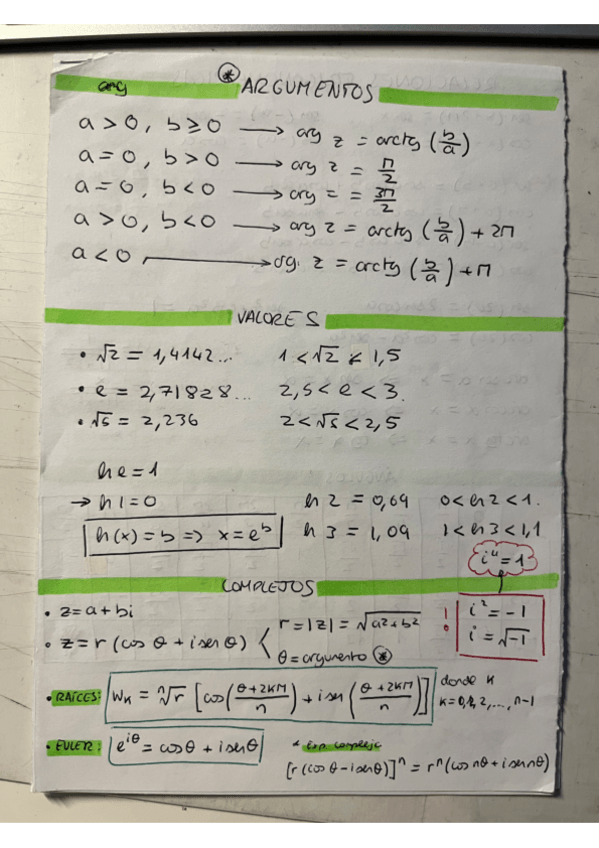 arg * ARGUMENTOS
a > 0, b ≥ 0 → arg z = arctg (b/a)
a = 0, b > 0 → arg z = π/2
a = 0, b < 0 → arg z = 3π/2
a > 0, b < 0 → arg z = arctg (b/a) + 2π
a < 0, → arg. z = arctg (b/a) + π
VALORES
• √2 = 1,4142... 1 < √2 < 1,5
• e = 2,71828... 2,5 < e < 3.
• √5 = 2,236 2 < √5 < 2,5
ln e = 1
→ ln 1 = 0 ln 2 = 0,69 0 < ln 2 < 1.
ln(x) = b => x = e^b ln 3 = 1,09 1 < ln 3 < 1,1
i⁴ = 1
COMPLEJOS
• z = a + bi
• z = r (cos θ + i sen θ) < r = |z| = √(a² + b²)
θ = argumento *
! i² = -1
i = √-1
• RAÍCES: Wk = ⁿ√r [cos((θ + 2kπ)/n) + i sen((θ + 2kπ)/n)] donde k
k = 0, 1, 2, ..., n-1
• EULER: e^(iθ) = cos θ + i sen θ
[r (cos θ - i sen θ)]ⁿ = rⁿ (cos nθ + i sen nθ)